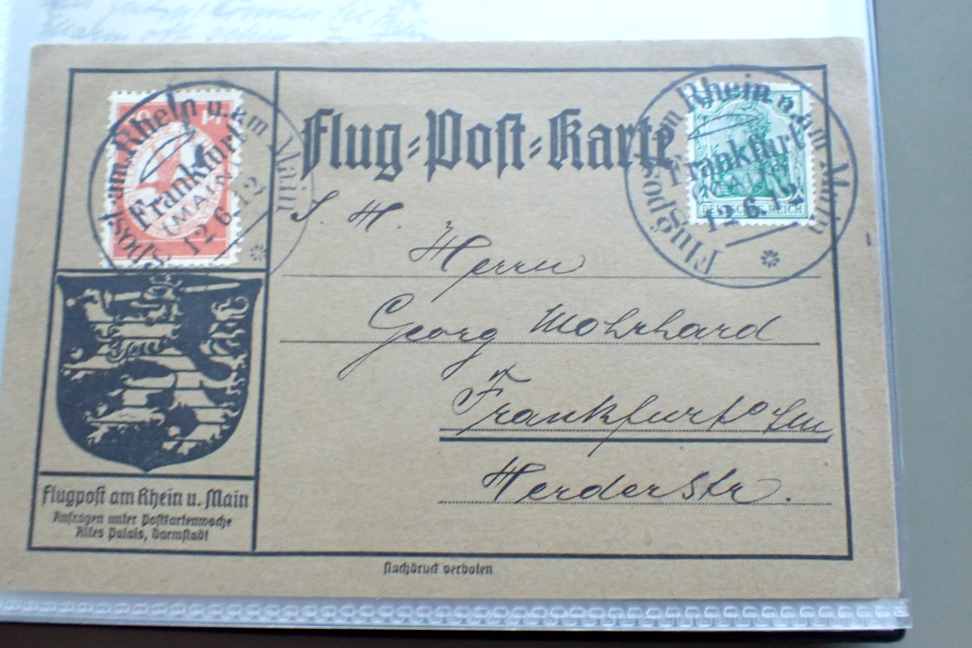 Flug-Post-Karte
Flugpost am Rhein u. am Main
Frankfurt
(MAIN)
12.6.12
Flugpost am Rhein u. am Main
Frankfurt
(MAIN)
12.6.12
S. H.
Herrn
Georg Mohrhard
Frankfurt
Herderstr.
Flugpost am Rhein u. Main
Anfragen unter Postkartenwoche
Altes Palais, Darmstadt
Nachdruck verboten